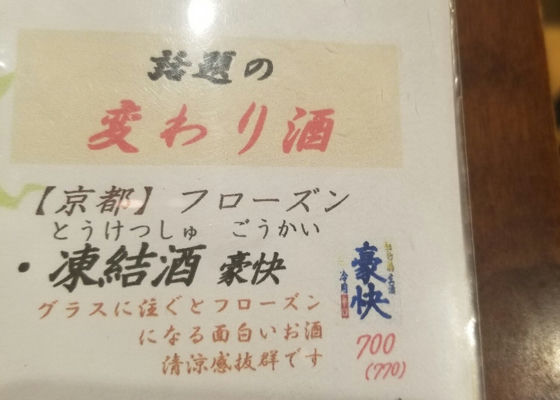 話題の
変わり酒
【京都】フローズン
とうけつしゅ ごうかい
・凍結酒 豪快
グラスに注ぐとフローズン
になる面白いお酒
清涼感抜群です
豪快
700
(770)